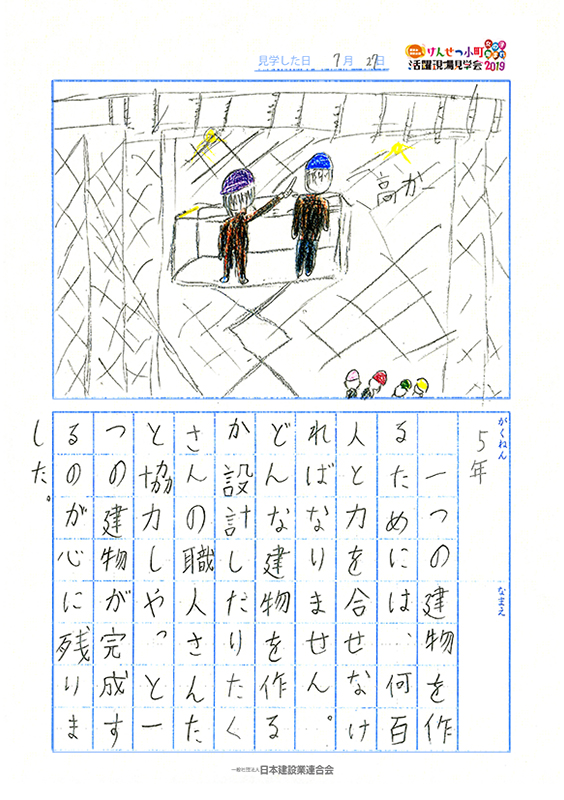 見学した日 7月27日
けんせつ小町
活躍現場見学会2019
高が
がくねん
5年
なまえ
一つの建物を作
るためには、何百
人と力を合せなけ
ればなりません。
どんな建物を作る
か設計したりたく
さんの職人さんた
と協力しやっと一
つの建物が完成す
るのが心に残りま
した。
一般社団法人 日本建設業連合会